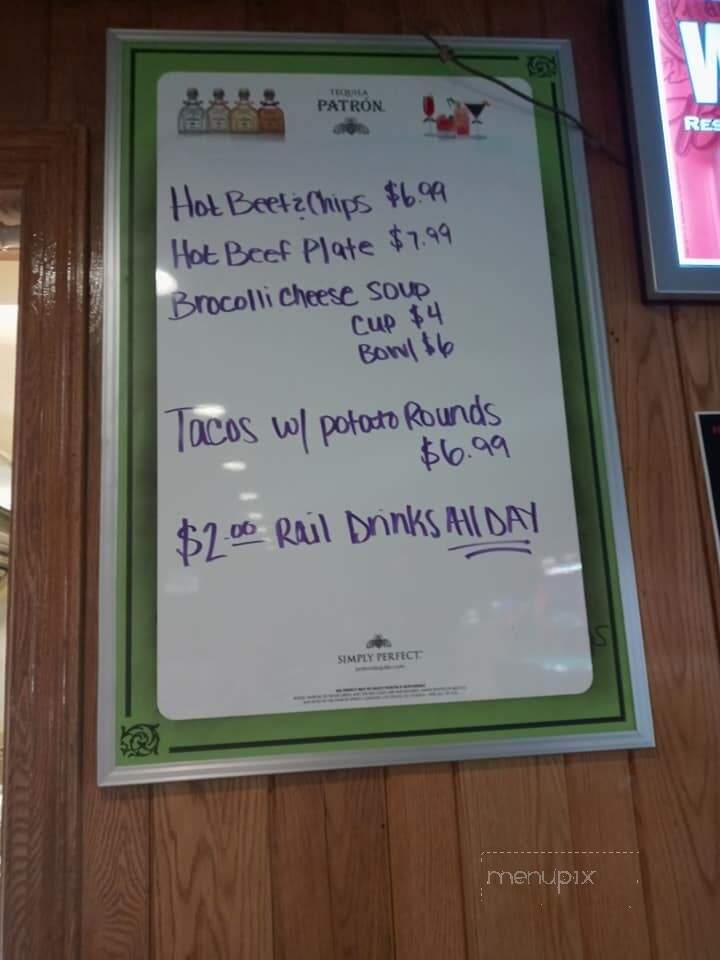 TEQUILA
PATRÓN
Hot Beef & Chips $6.99
Hot Beef Plate $7.99
Brocolli cheese soup
cup $4
Bowl $6
Tacos w/ potato Rounds
$6.99
$2.00 Rail Drinks All DAY
SIMPLY PERFECT.
W
RES
S
menupix